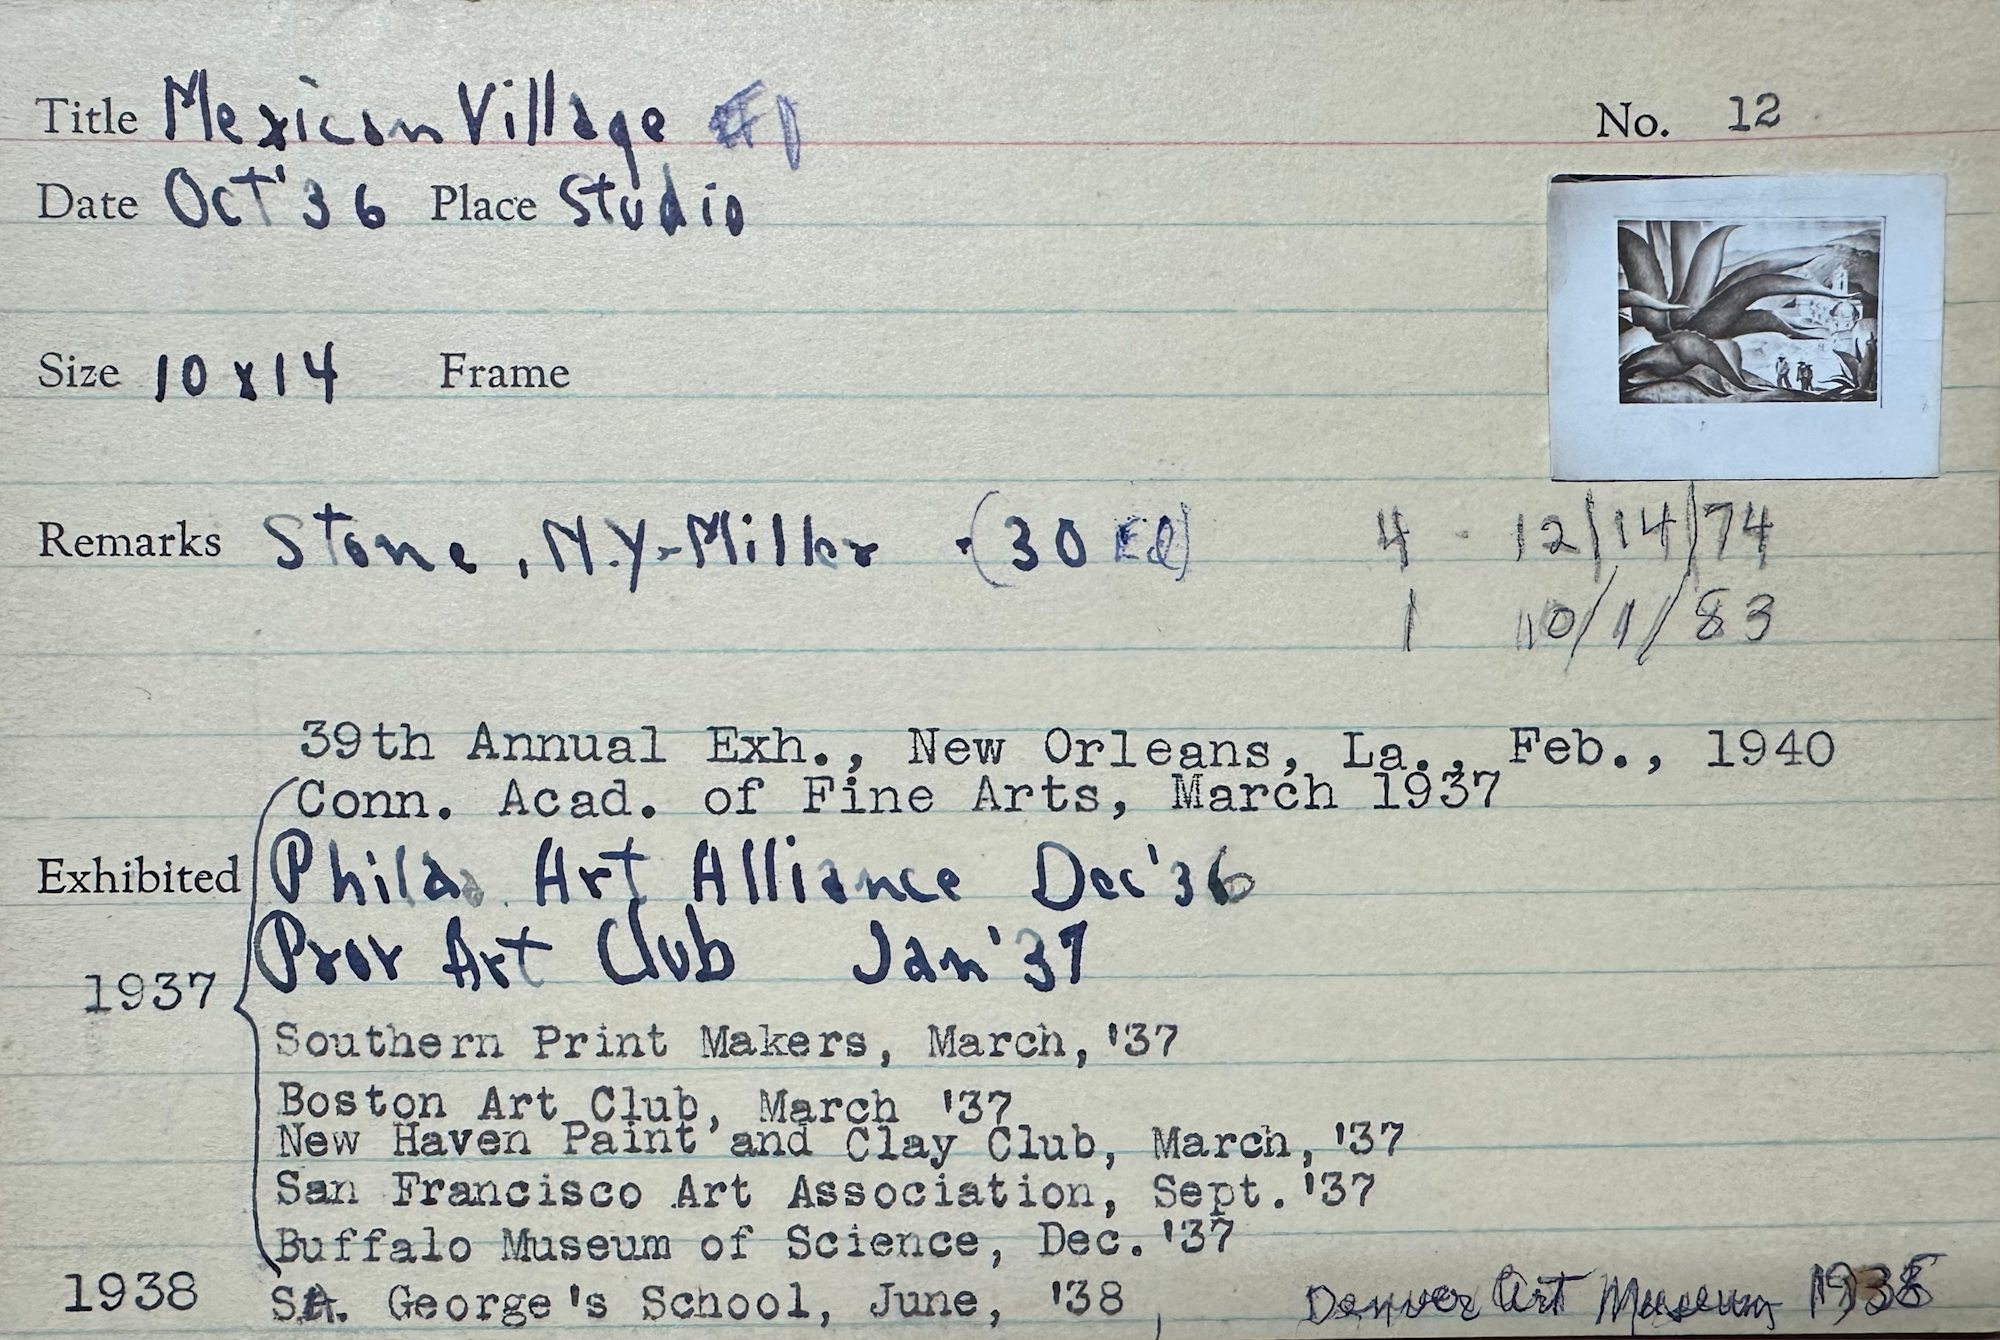 Title Mexican Village #1 No. 12
Date Oct '36 Place Studio
Size 10 x 14 Frame
Remarks Stone, N.Y-Miller - (30 Ed) 4 - 12/14/74
1 10/1/83
39th Annual Exh., New Orleans, La., Feb., 1940
Conn. Acad. of Fine Arts, March 1937
Exhibited Phila. Art Alliance Dec '36
Prov Art Club Jan '37
1937
Southern Print Makers, March, '37
Boston Art Club, March '37
New Haven Paint and Clay Club, March, '37
San Francisco Art Association, Sept. '37
Buffalo Museum of Science, Dec. '37
1938 St. George's School, June, '38, Denver Art Museum